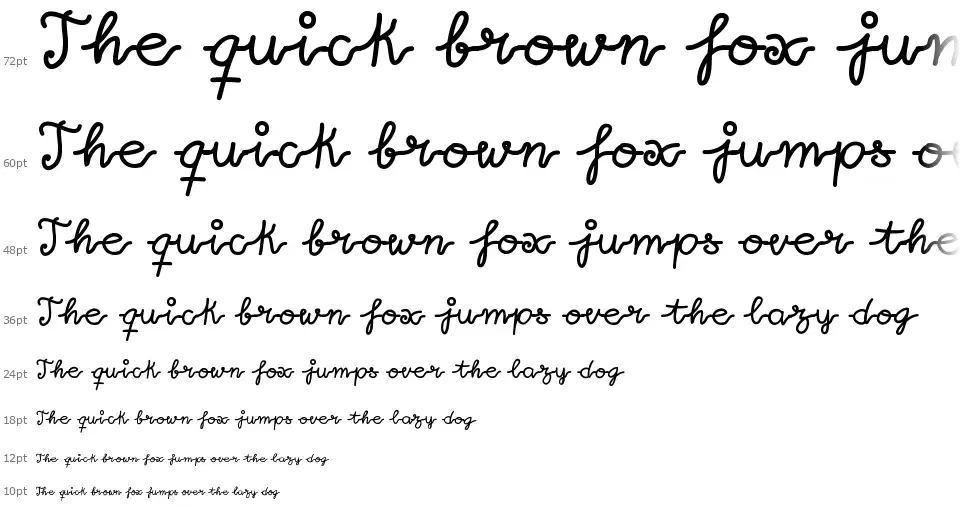 72pt The quick brown fox jun
60pt The quick brown fox jumps o
48pt The quick brown fox jumps over the
36pt The quick brown fox jumps over the lazy dog
24pt The quick brown fox jumps over the lazy dog
18pt The quick brown fox jumps over the lazy dog
12pt The quick brown fox jumps over the lazy dog
10pt The quick brown fox jumps over the lazy dog